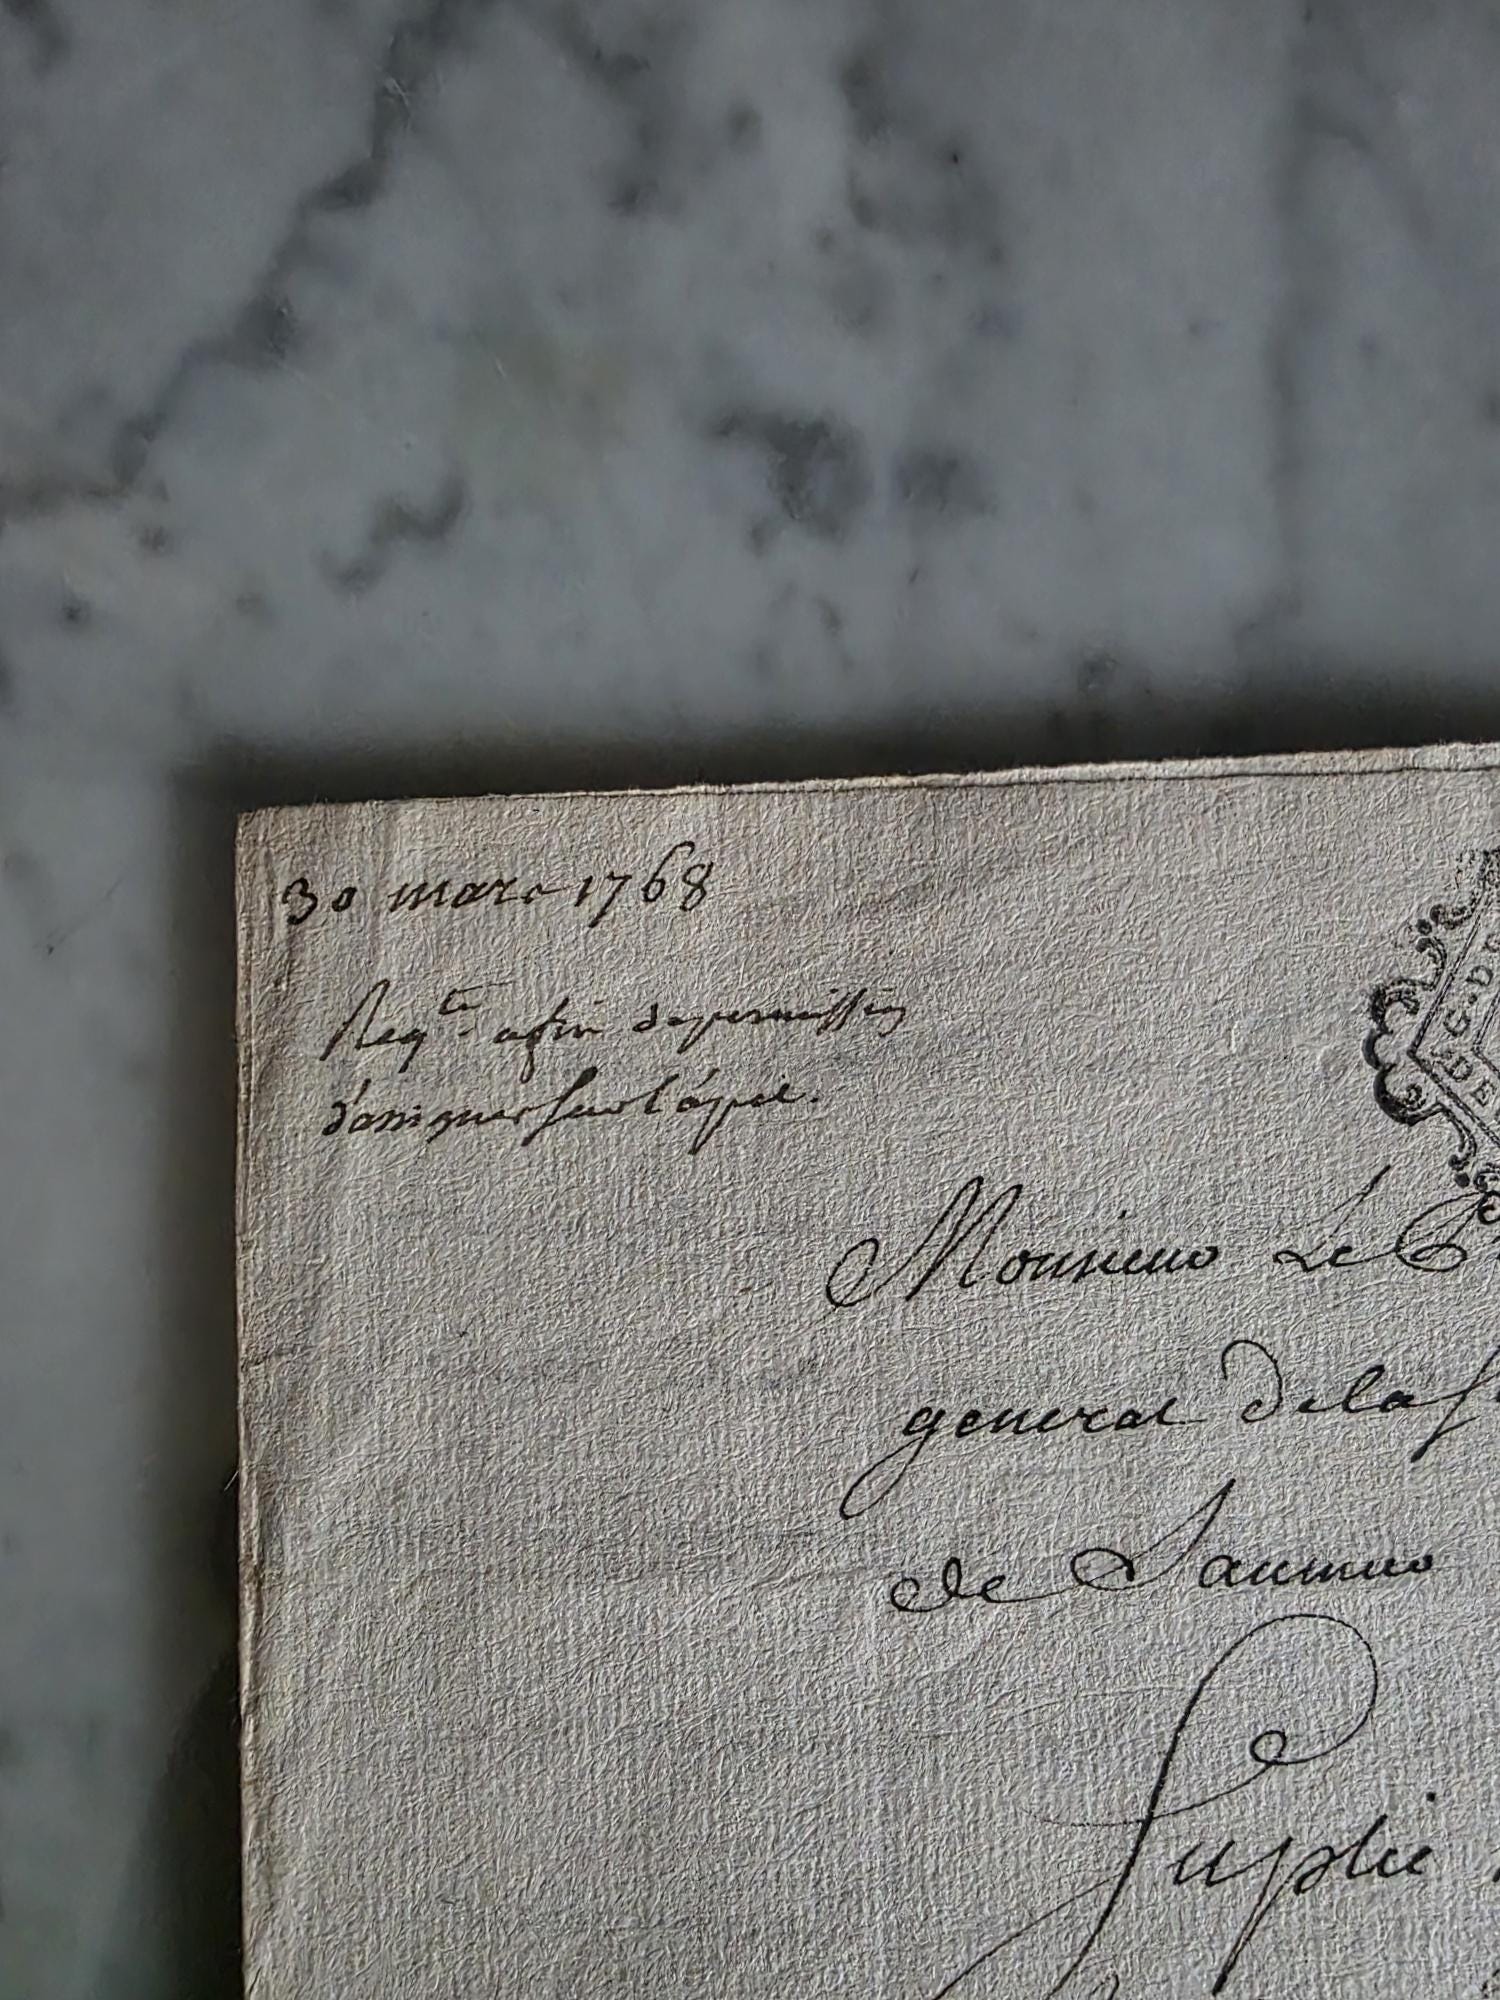 30 mars 1768
Reqte. afin de permission
d'assigner sur l'apel.
G. DE
DE
Monsieur Le
general de la
de Saumur
Suplie